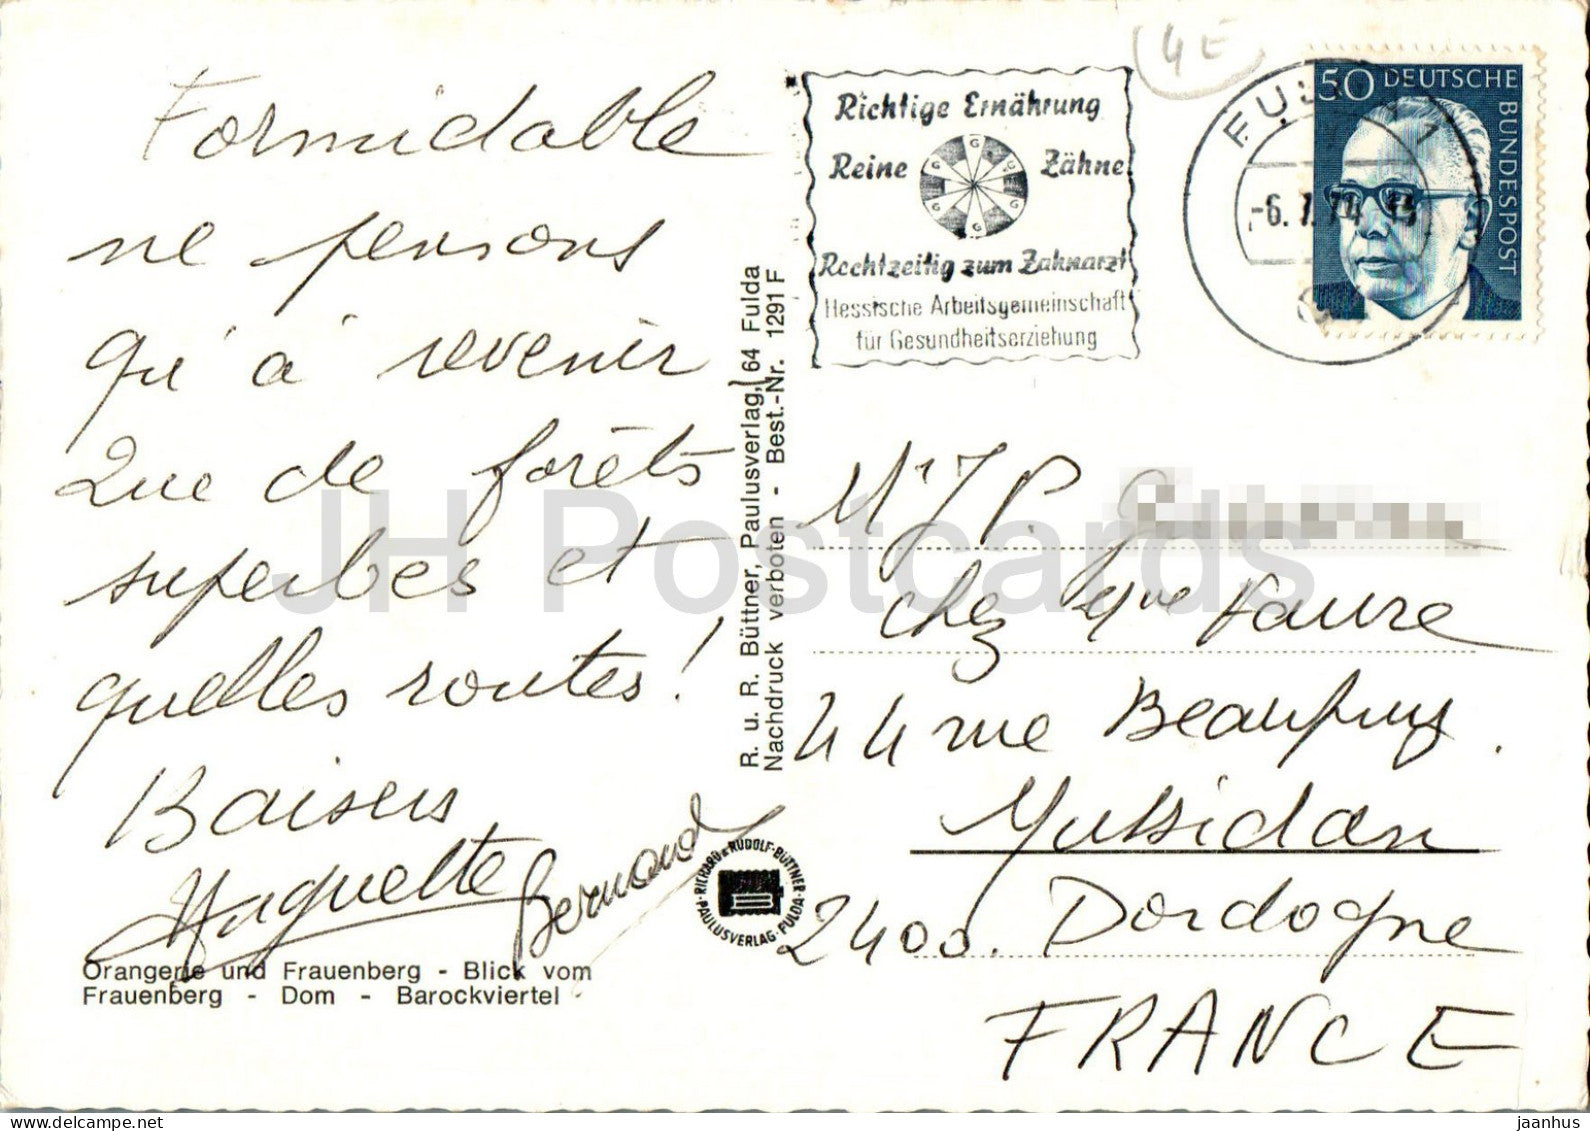 Formidable
ne pensons
qu'à revenir
Que de forêts
superbes et
quelles routes!
Baisers
Huguette Bernard
Orangerie und Frauenberg - Blick vom
Frauenberg - Dom - Barockviertel
R. u. R. Büttner, Paulusverlag, 64 Fulda
Nachdruck verboten - Best.-Nr. 1291 F
RICHARD & RUDOLF BÜTTNER
PAULUSVERLAG · FULDA
4 E
Richtige Ernährung
Reine Zähne
Rechtzeitig zum Zahnarzt
Hessische Arbeitsgemeinschaft
für Gesundheitserziehung
FULDA 1
-6.7.74
50 DEUTSCHE
BUNDESPOST
M J.P.
chez Mme Faure
44 rue Beaupuy.
Mussidan
2400. Dordogne
FRANCE
JH Postcards
jaanhus
delcampe.net